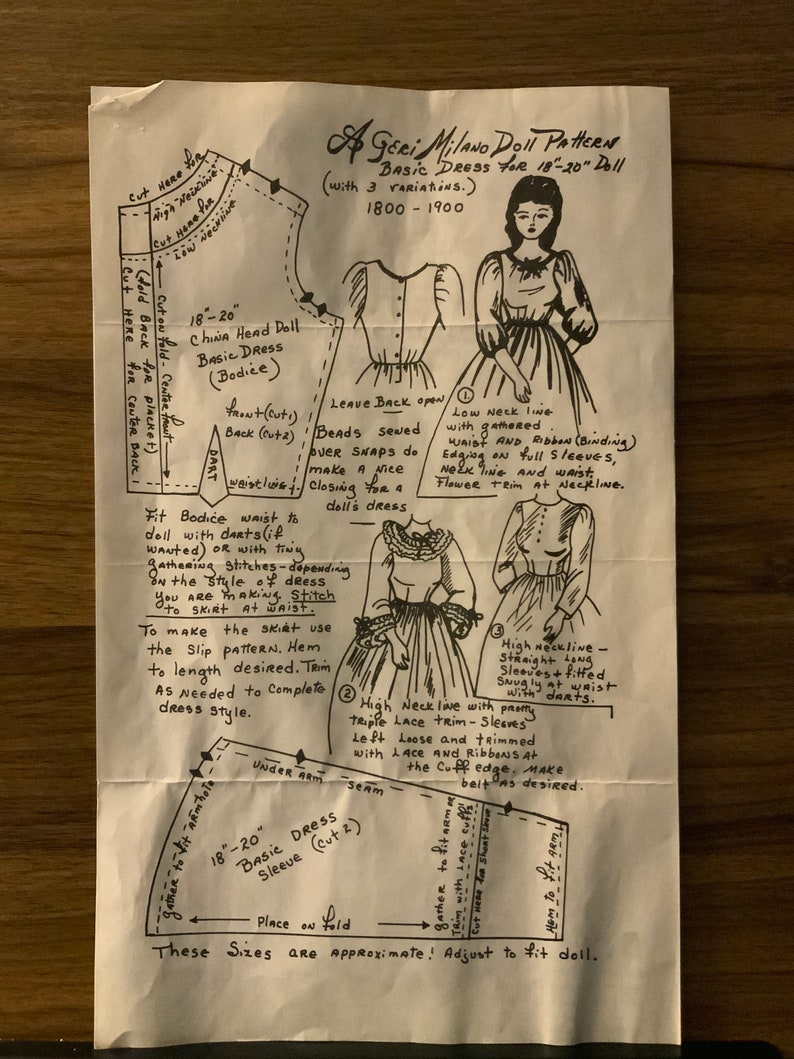 A Geri Milano Doll Pattern
Basic Dress for 18"-20" Doll
(with 3 variations.)
1800 - 1900
Cut Here for
High Neckline
Cut Here for
Low Neckline
Cut Here for Center Back!
(fold Back for placket)
Cut on fold - Center front
18"-20"
China Head Doll
Basic Dress
(Bodice)
Front (Cut 1)
Back (Cut 2)
DART
Waistline
Leave Back open
Beads sewed
over snaps do
make a nice
closing for a
doll's dress
1.
Low neck line
with gathered
waist and Ribbon (Binding)
Edging on full sleeves,
Neck line and waist,
Flower trim at Neckline.
Fit Bodice waist to
doll with darts (if
wanted) or with tiny
gathering stitches - depending
on the style of dress
you are making. Stitch
to skirt at waist.
To make the skirt use
the slip pattern. Hem
to length desired. Trim
as needed to complete
dress style.
2
High Neckline with pretty
triple Lace trim - Sleeves
Left Loose and trimmed
with Lace and Ribbons at
the Cuff edge. Make
belt as desired.
3
High Neckline -
straight long
sleeves + fitted
snugly at waist
with darts.
Under arm seam
gather to fit armhole
18"-20"
Basic Dress
Sleeve (Cut 2)
gather to fit arm or
Trim with Lace cuffs
Cut Here for Short Sleeve
Hem to fit arm
Place on fold
These sizes are approximate! Adjust to fit doll.